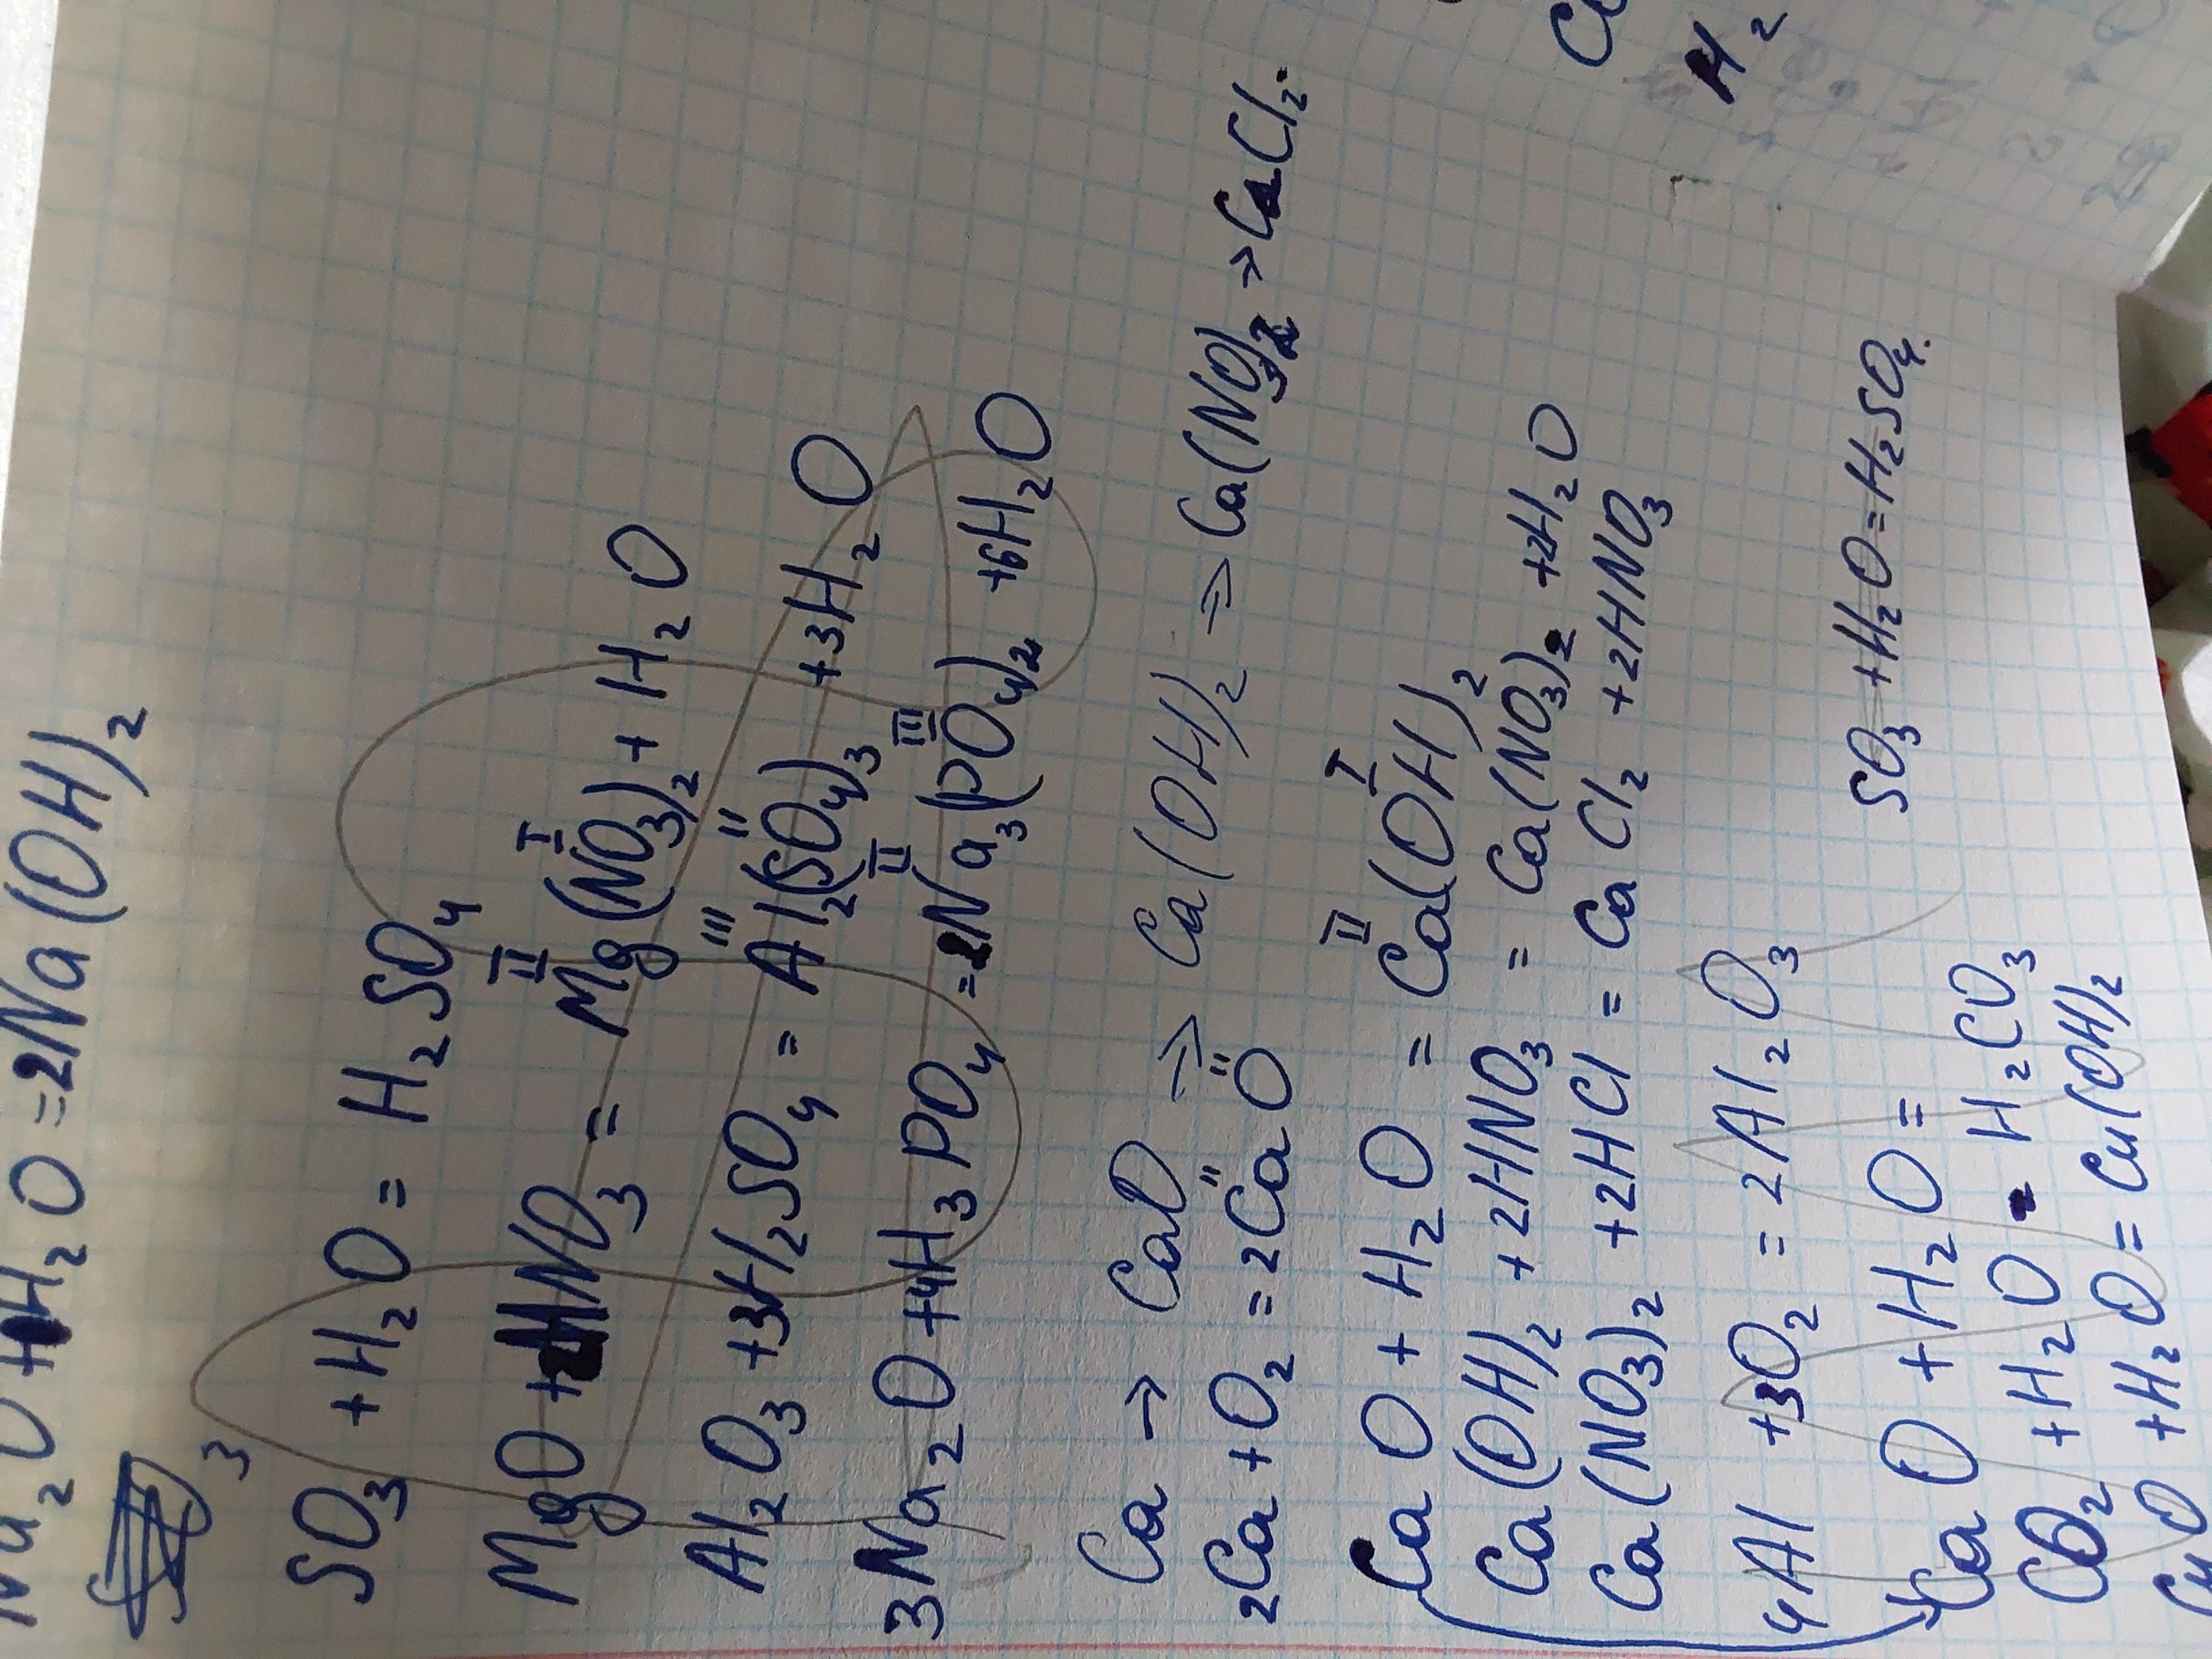 Na₂O + H₂O = 2Na(OH)₂
3
SO₃ + H₂O = H₂SO₄
II I
MgO + 2HNO₃ = Mg(NO₃)₂ + H₂O
III II
Al₂O₃ + 3H₂SO₄ = Al₂(SO₄)₃ + 3H₂O
II III
3Na₂O + 4H₃PO₄ = 2Na₃(PO₄)₂ + 6H₂O
Ca → CaO → Ca(OH)₂ → Ca(NO₃)₂ → CaCl₂.
II II
2Ca + O₂ = 2CaO
II I
CaO + H₂O = Ca(OH)₂
Ca(OH)₂ + 2HNO₃ = Ca(NO₃)₂ + 2H₂O
Ca(NO₃)₂ + 2HCl = CaCl₂ + 2HNO₃
4Al + 3O₂ = 2Al₂O₃
CaO + H₂O =
SO₃ + H₂O = H₂SO₄.
CO₂ + H₂O = H₂CO₃
CuO + H₂O = Cu(OH)₂
H₂